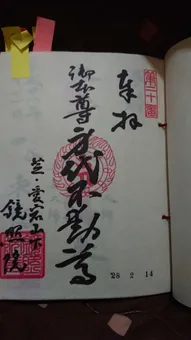 奉拝
第二十番
御本尊 厄除不動尊
芝・愛宕山下
鏡照院
28 2 14